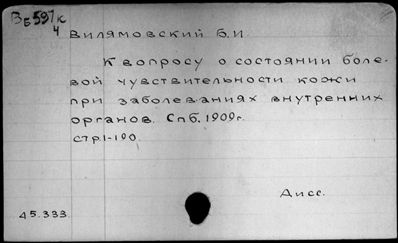 Вб597к
4
Вилямовский Б.И.
К вопросу о состоянии боле-
вой чувствительности кожи
при заболеваниях внутренних
органов. Спб. 1909г.
стр.1-190.
Дисс.
45.333.